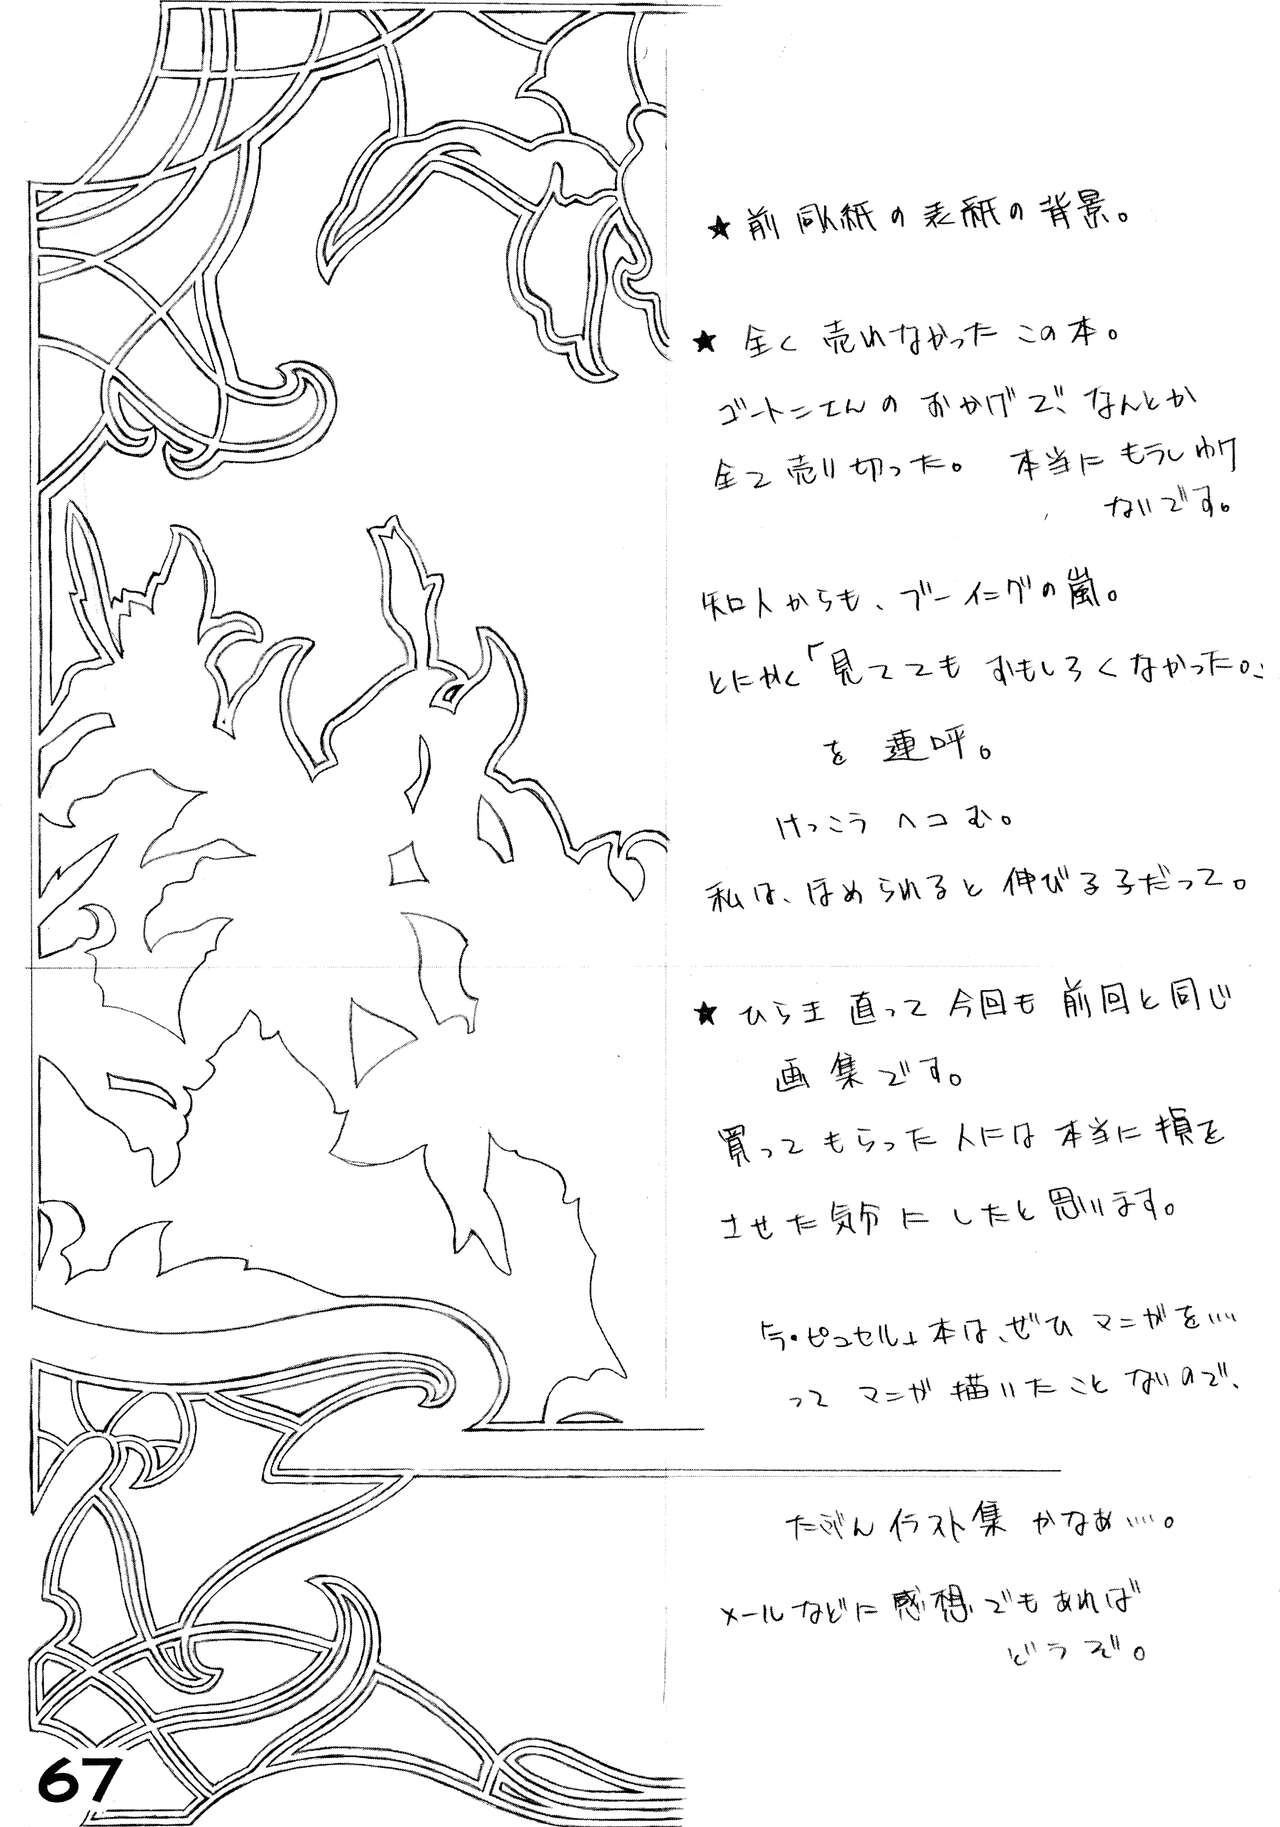 ★ 前同人紙の表紙の背景。
★ 全く売れなかったこの本。
ゴートニさんのおかげで、なんとか
全て売り切った。 本当にもうしわけ
ないです。
知人からも、ブーイングの嵐。
とにかく「見ててもおもしろくなかった。」
を連呼。
けっこうヘコむ。
私は、ほめられると伸びる子だって。
★ ひらき直って今回も前回と同じ
画集です。
買ってもらった人には本当に損を
させた気分にしたと思います。
「ラ・ピュセル」本は、ぜひマンガを‥‥
ってマンガ描いたことないので、
たぶんイラスト集かなぁ‥‥。
メールなどに感想でもあれば
どうぞ。
67